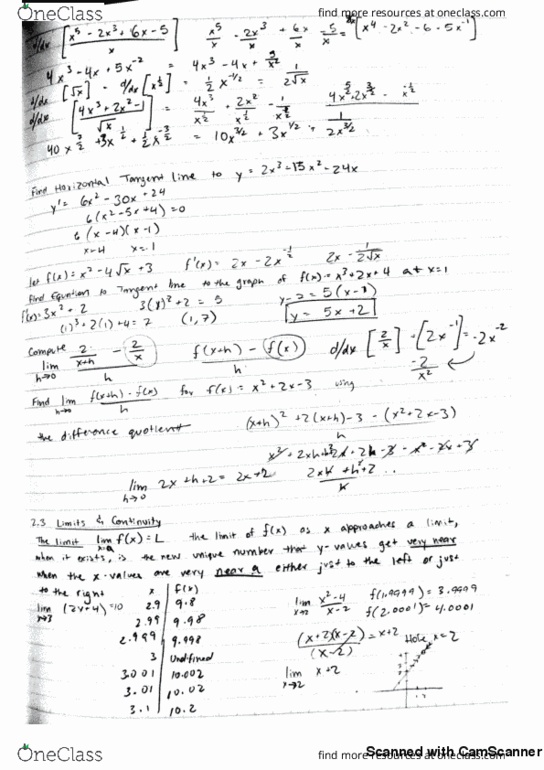 OneClass
find more resources at oneclass.com
d/dx [x⁵ - 2x³ + 6x - 5 / x] x⁵/x - 2x³/x + 6x/x - 5/x = [x⁴ - 2x² - 6 - 5x⁻¹]
4x³ - 4x + 5x⁻² = 4x³ - 4x + 5/x²
d/dx [√x] = d/dx [x^½] = ½ x^-½ = 1/2√x
d/dx [4x³ + 2x² - 1 / √x] = 4x³/x^½ + 2x²/x^½ - 1/x^½
= 10x^3/2 + 3x^1/2 + 1/2x^3/2
Find Horizontal Tangent line to y = 2x³ - 15x² - 24x
y' = 6x² - 30x + 24
6(x² - 5x + 4) = 0
6(x - 4)(x - 1)
x = 4 x = 1
let f(x) = x² - 4√x + 3 f'(x) = 2x - 2x^-½ 2x - 1/2√x
Find Equation to Tangent line to the graph of f(x) = x³ + 2x + 4 at x = 1
f'(x) = 3x² + 2 3(1)² + 2 = 5 y - 7 = 5(x - 1)
(1)³ + 2(1) + 4 = 7 (1, 7) y = 5x + 2
Compute lim h→0 2/x+h - 2/x / h f(x+h) - f(x) / h d/dx [2/x] = [2x⁻¹] = -2x⁻²
-2/x²
Find lim h→0 f(x+h) - f(x) / h for f(x) = x² + 2x - 3 using
the difference quotient (x+h)² + 2(x+h) - 3 - (x² + 2x - 3) / h
lim h→0 2x + h + 2 = 2x + 2
2.3 Limits & Continuity
The limit lim x→a f(x) = L the limit of f(x) as x approaches a limit,
when it exists, is the new unique number that y-values get very near
when the x-values are very near a either just to the left or just
to the right
x f(x)
lim x→3 (2x+4) = 10
2.9 9.8
2.99 9.98
2.999 9.998
3 Undefined
3.001 10.002
3.01 10.02
3.1 10.2
lim x→2 x² - 4 / x - 2 f(1.9999) = 3.9999
f(2.0001) = 4.0001
(x+2)(x-2) / (x-2) = x + 2 Hole x = 2
lim x→2 x + 2
OneClass
find more resources at oneclass.com
Scanned with CamScanner